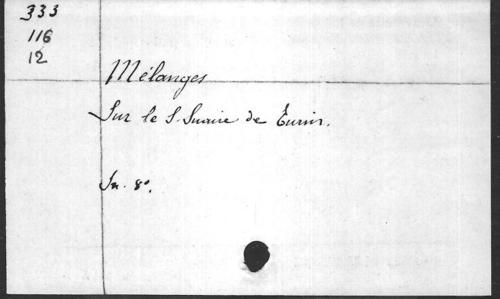 333
116
12
Mélanges
Sur le S. Suaire de Turin.
In. 8º.